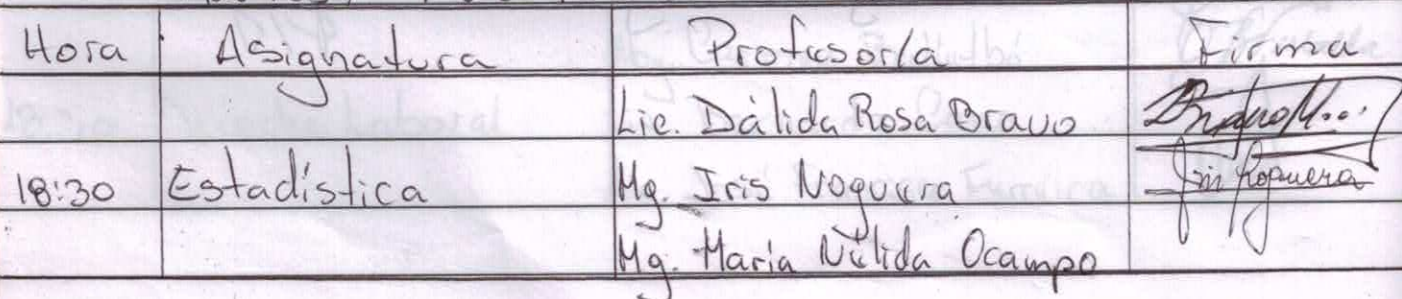 Hora Asignatura Profesor/a Firma
Lic. Dálida Rosa Bravo
18:30 Estadística Mg. Iris Noguera Iris Noguera
Mg. María Nélida Ocampo